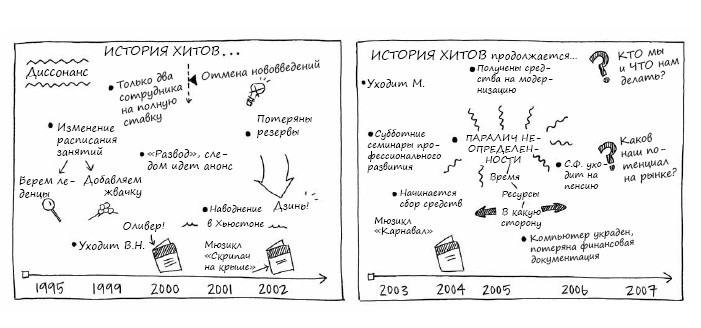 ИСТОРИЯ ХИТОВ...
Диссонанс
Только два
сотрудника
на полную
ставку
Отмена нововведений
Потеряны
резервы
Изменение
расписания
занятий
«Развод», сле-
дом идет анонс
Берем ле-
денцы
Добавляем
жвачку
Дзинь!
Наводнение
в Хьюстоне
Оливер!
Уходит В.Н.
Мюзикл
«Скрипач
на крыше»
1995
1999
2000
2001
2002
ИСТОРИЯ ХИТОВ продолжается...
Получены сред-
ства на модер-
низацию
КТО мы
и ЧТО нам
делать?
Уходит М.
Субботние
семинары про-
фессионального
развития
ПАРАЛИЧ НЕ-
ОПРЕДЕЛЕН-
НОСТИ
Время
Ресурсы
В какую
сторону
С.Ф. ухо-
дит на
пенсию
Каков
наш по-
тенциал
на рынке?
Начинается
сбор средств
Мюзикл
«Карнавал»
Компьютер украден,
потеряна финансовая
документация
2003
2004
2005
2006
2007